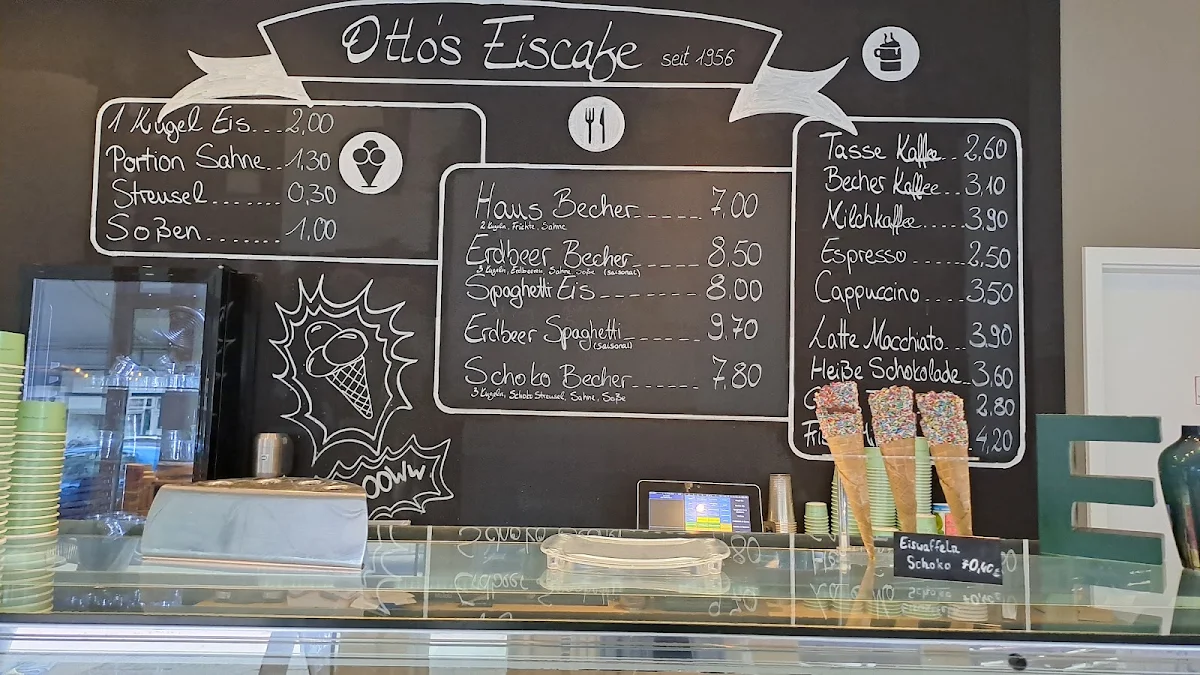 Otto's Eiscafe seit 1956
1 Kugel Eis...2,00
Portion Sahne..1,30
Streusel.......0,30
Soßen.......1,00
Haus Becher------7,00
2 Kugeln, Früchte, Sahne
Erdbeer Becher-----8,50
3 Kugeln, Erdbeeren, Sahne, Soße (saisonal)
Spaghetti Eis--------8,00
Erdbeer Spaghetti------9,70
(saisonal)
Schoko Becher------7,80
3 Kugeln, Schoko Streusel, Sahne, Soße
Tasse Kaffee..2,60
Becher Kaffee..3,10
Milchkaffee....3,90
Espresso.....2,50
Cappuccino....3,50
Latte Macchiato..3,90
Heiße Schokolade..3,60
2,80
4,20
E
Eiswaffeln
Schoko +0,40€